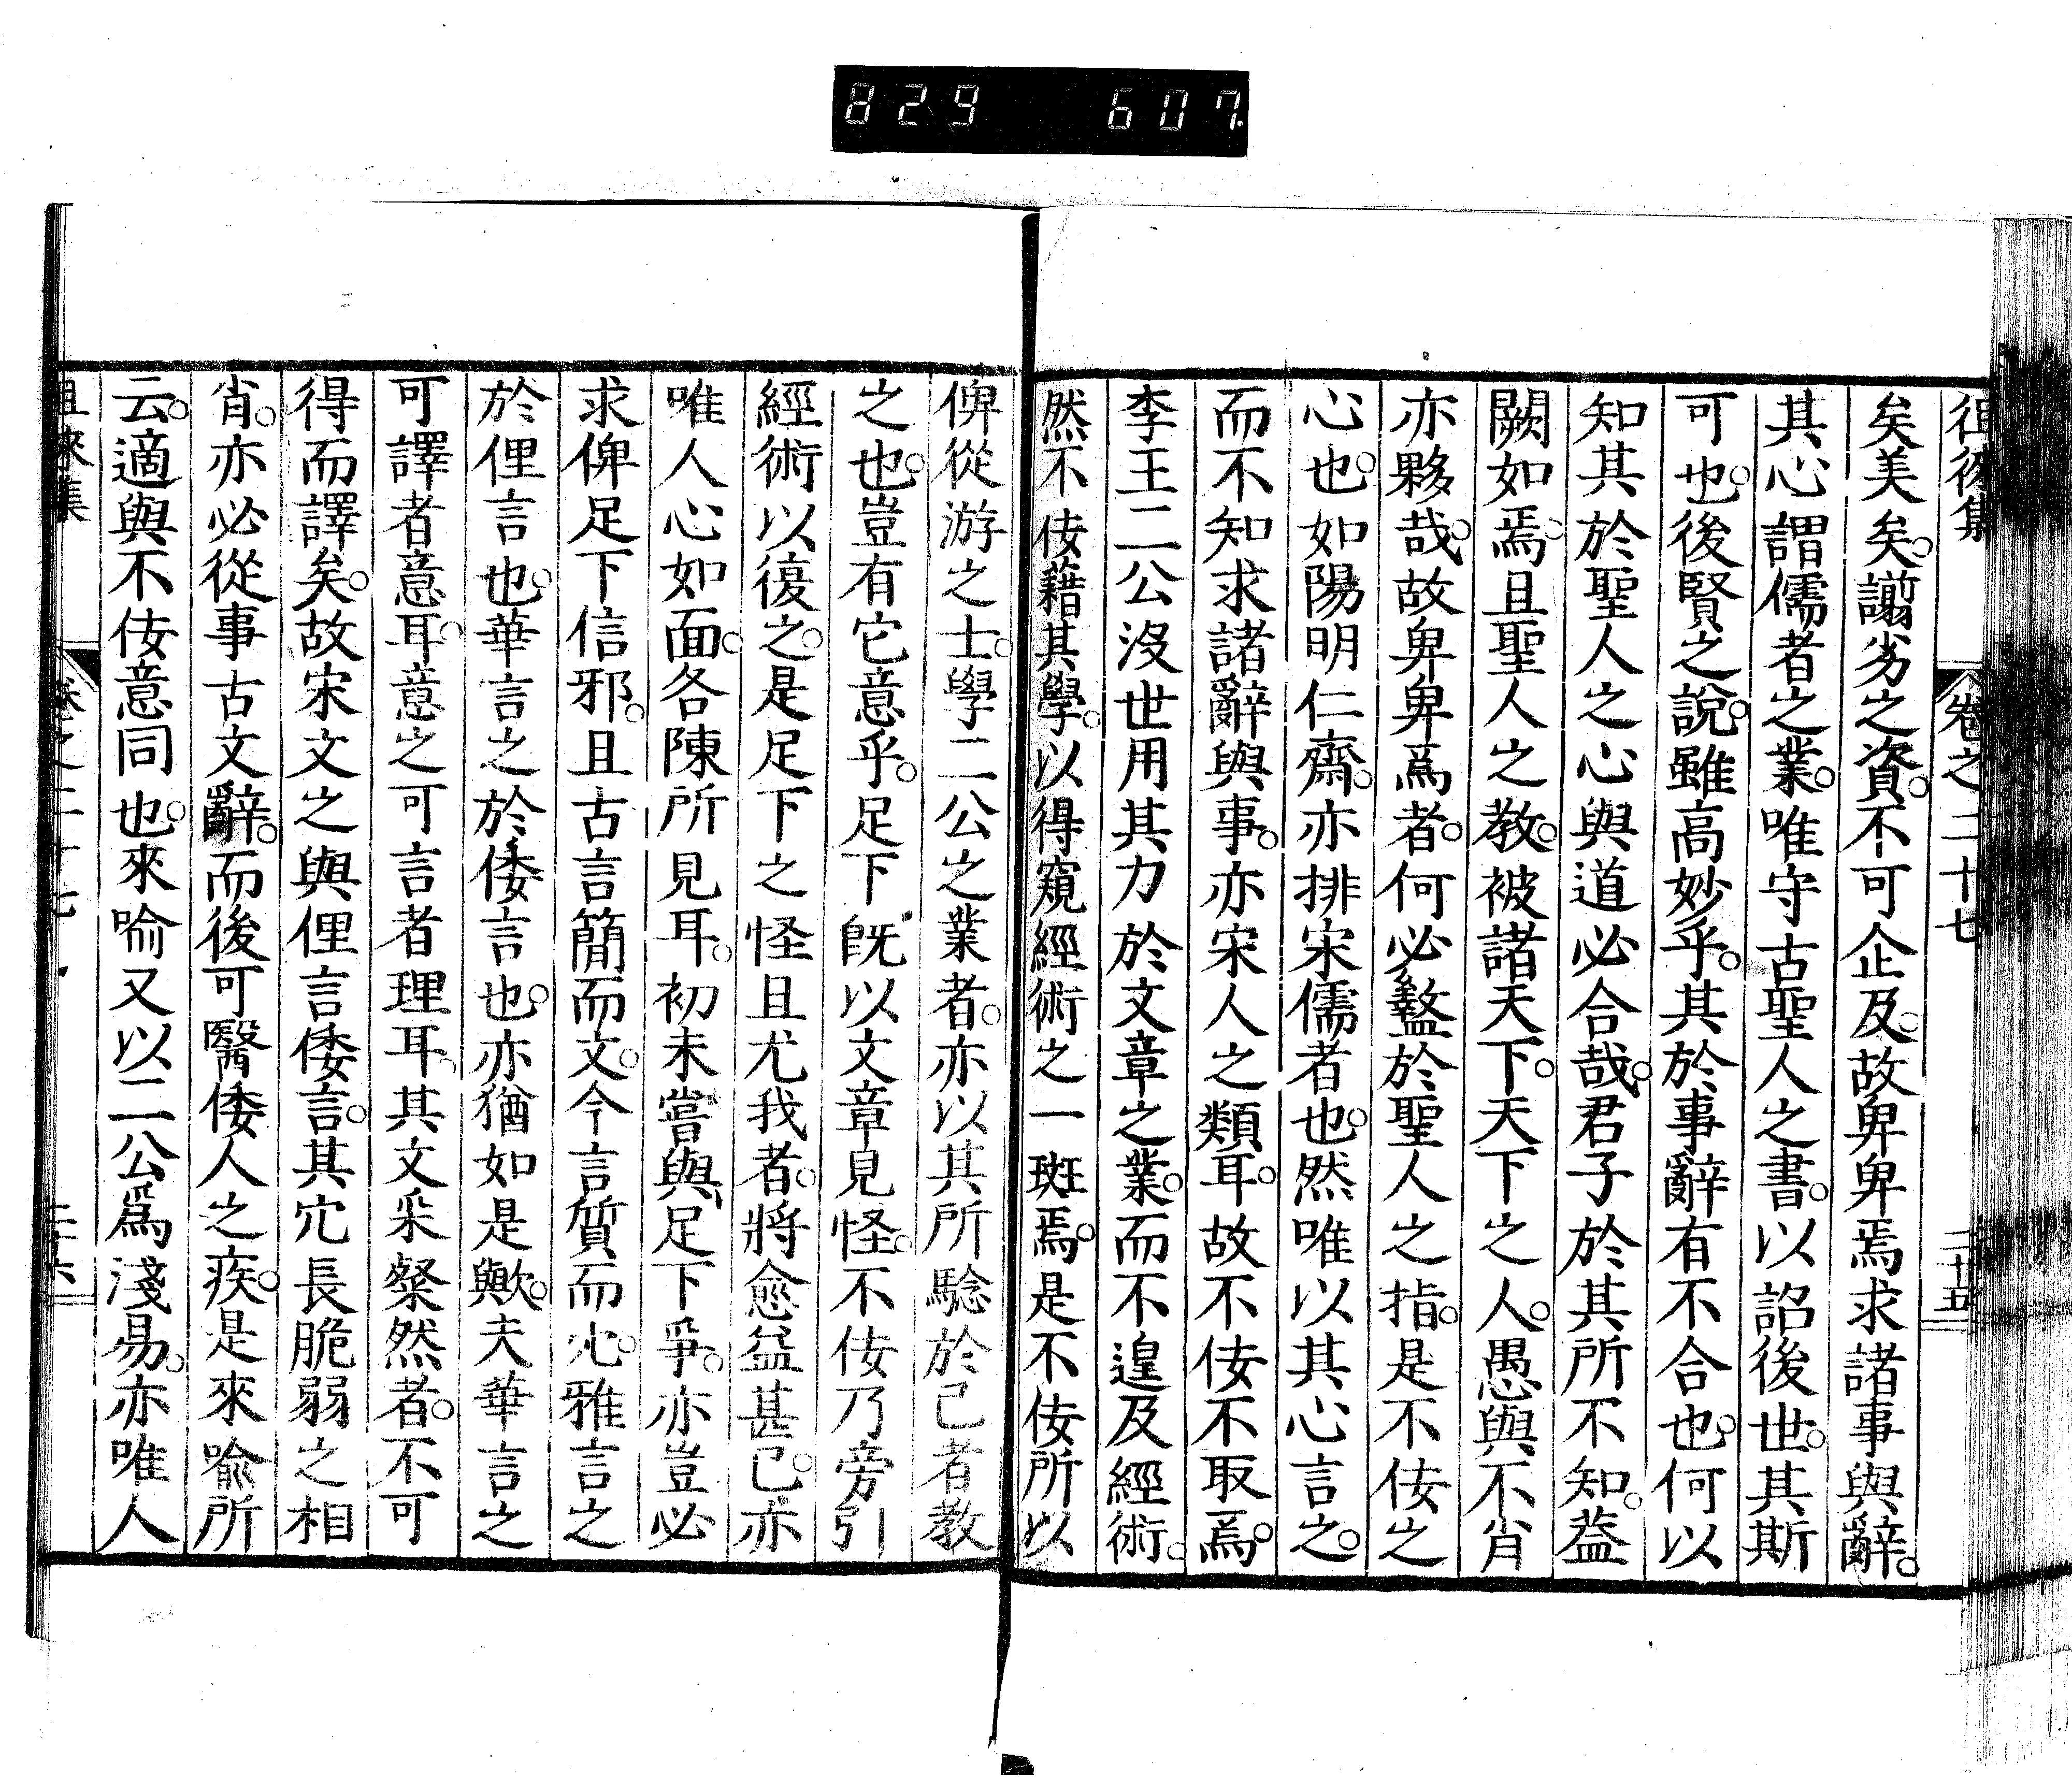 829 607.
徂徠集 卷之二十七 二十五
矣美矣。謭劣之資。不可企及。故卑卑焉求諸事與辭。
其心謂儒者之業。唯守古聖人之書。以詔後世。其斯
可也。後賢之說。雖高妙乎。其於事辭有不合也。何以
知其於聖人之心與道必合哉。君子於其所不知。蓋
闕如焉。且聖人之教。被諸天下。天下之人。愚與不肖
亦夥哉。故卑卑爲者。何必盭於聖人之指。是不佞之
心也。如陽明仁齋。亦排宋儒者也。然唯以其心言之。
而不知求諸辭與事。亦宋人之類耳。故不佞不取焉。
李王二公沒世用其力於文章之業。而不遑及經術。
然不佞藉其學。以得窺經術之一斑焉。是不佞所以
俾從游之士。學二公之業者。亦以其所騐於己者教
之也。豈有它意乎。足下旣以文章見怪。不佞乃旁引
經術以復之。是足下之怪且尤我者。將愈益甚已。亦
唯人心如面。各陳所見耳。初未嘗與足下爭。亦豈必
求俾足下信邪。且古言簡而文。今言質而冗。雅言之
於俚言也。華言之於倭言也。亦猶如是歟。夫華言之
可譯者意耳。意之可言者理耳。其文采粲然者。不可
得而譯矣。故宋文之與俚言倭言。其冗長脆弱之相
肖。亦必從事古文辭。而後可醫倭人之疾。是來喩所
云。適與不佞意同也。來喩又以二公爲淺易。亦唯人
徠集 卷之二十七 二十六